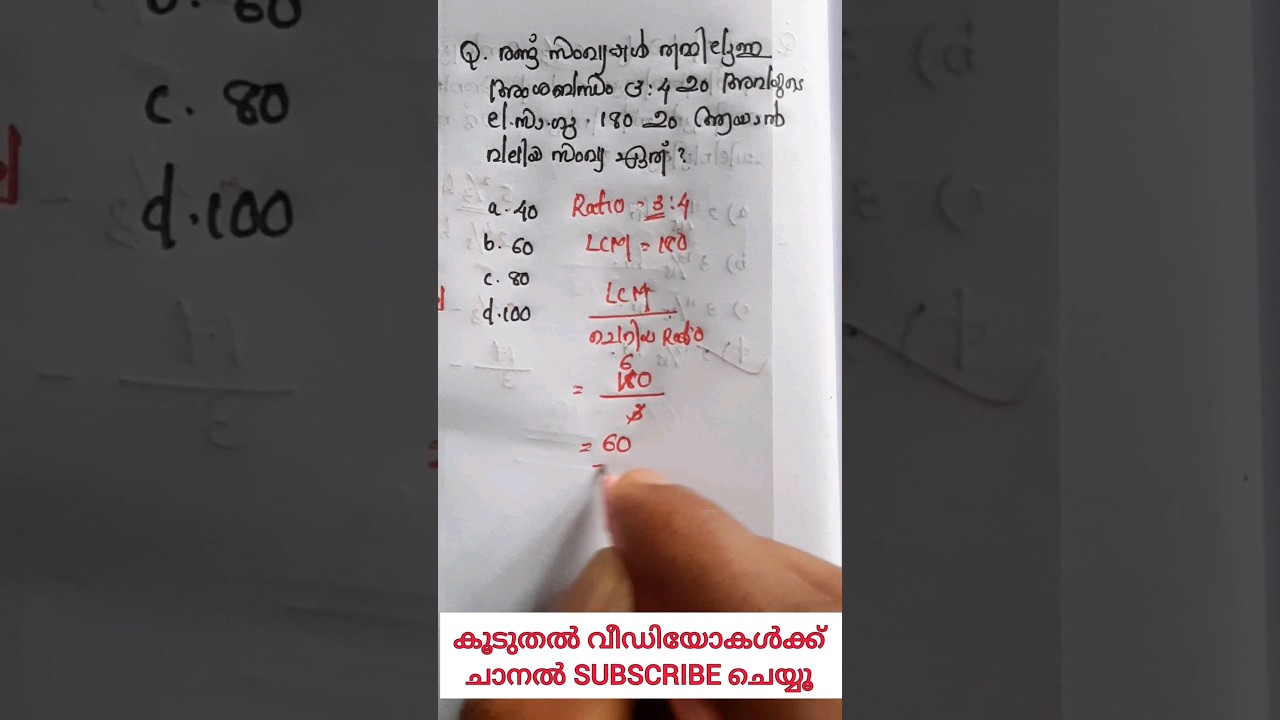 Q. രണ്ട് സംഖ്യകൾ തമ്മിലുള്ള
അംശബന്ധം 3:4 ഉം അവയുടെ
ല.സാ.ഗു. 180 ഉം ആയാൽ
വലിയ സംഖ്യ ഏത്?
a. 40
b. 60
c. 80
d. 100
Ratio = 3:4
LCM = 180
LCM
ചെറിയ Ratio
6
= 180
3
= 60
60
c. 80
d. 100
കൂടുതൽ വീഡിയോകൾക്ക്
ചാനൽ SUBSCRIBE ചെയ്യൂ